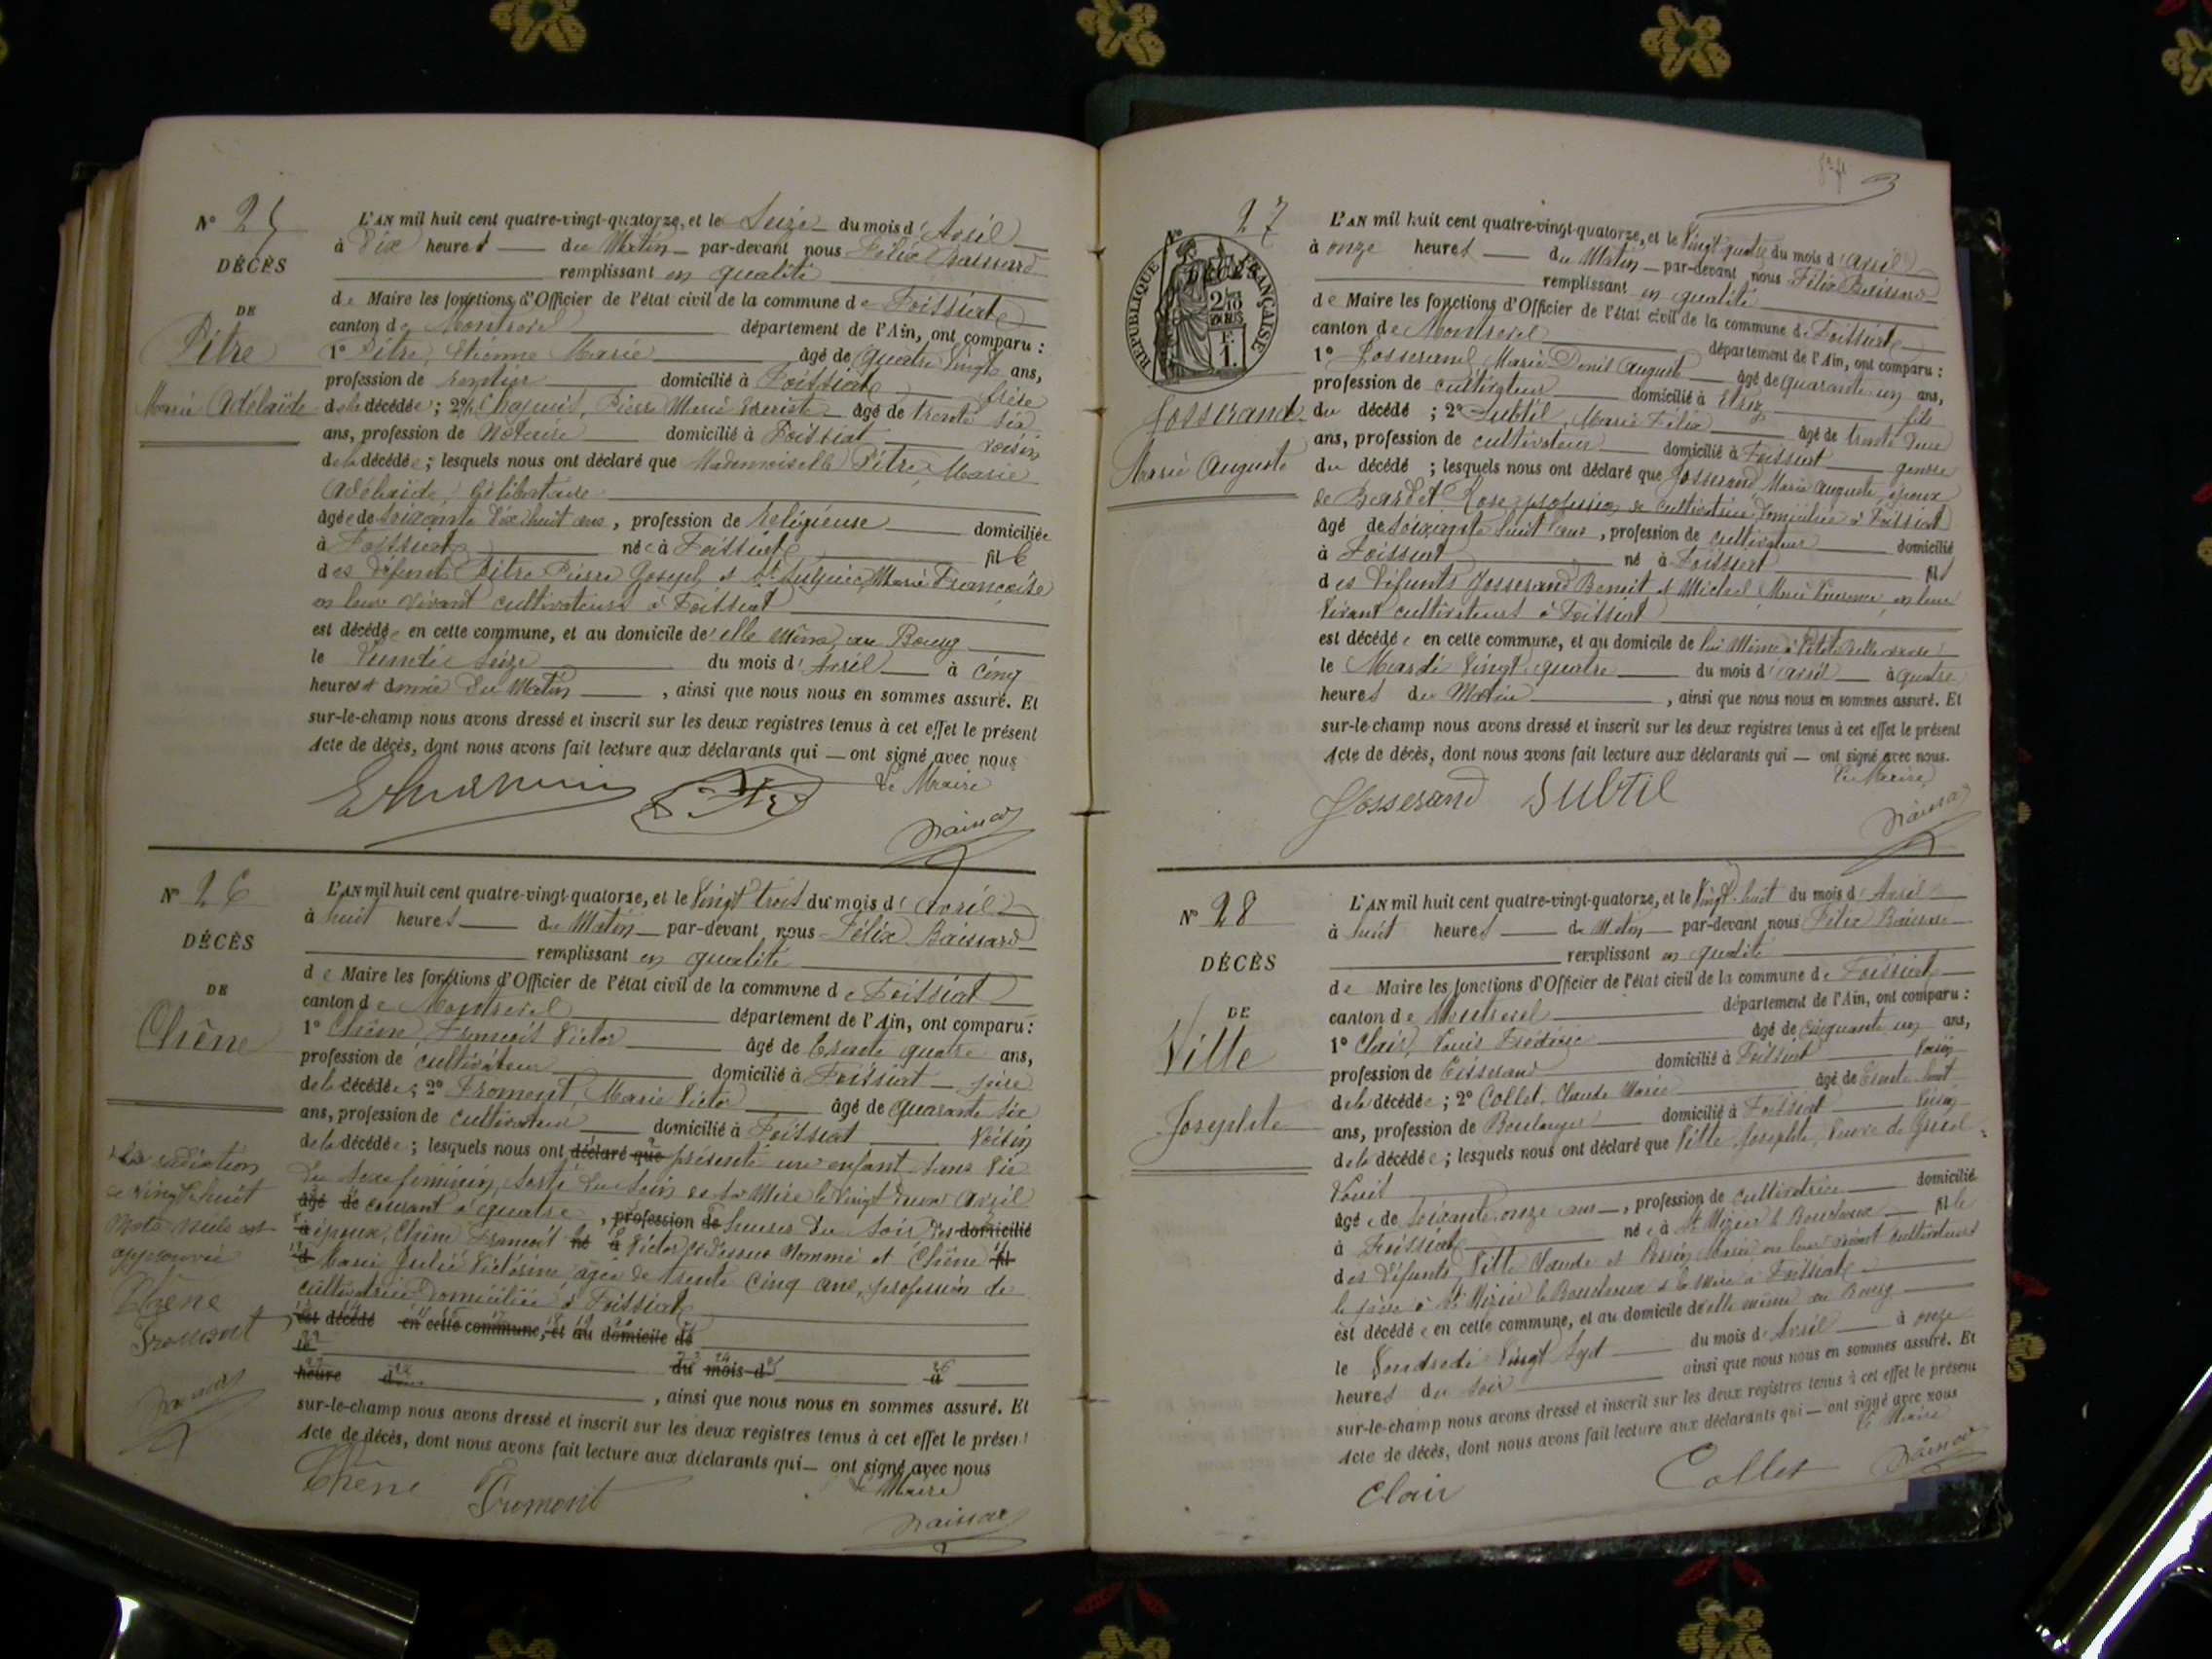 N° 25
DÉCÈS
DE
Pitre
Marie Adélaïde
L'AN mil huit cent quatre-vingt-quatorze, et le Seize du mois d'Avril
à Dix heures du Matin par-devant nous Félix Baissard
remplissant en qualité
de Maire les fonctions d'Officier de l'état civil de la commune de Foissiat
canton de Montrevel département de l'Ain, ont comparu :
1° Pitre, Etienne Marie âgé de quatre vingts ans,
profession de rentier domicilié à Foissiat frère
de la décédée ; 2° Pierre Marie âgé de trente six
ans, profession de Notaire domicilié à Foissiat voisin
de la décédée ; lesquels nous ont déclaré que Mademoiselle Pitre, Marie
Adélaïde, Célibataire
âgée de soixante dix huit ans, profession de Religieuse domiciliée
à Foissiat née à Foissiat fille
des défunts Pitre Pierre Joseph et Marie Françoise
en leur vivant cultivateurs à Foissiat
est décédée en cette commune, et au domicile de elle même, au Bourg
le Lundi Seize du mois d'Avril à cinq
heures et demie du Matin, ainsi que nous nous en sommes assuré. Et
sur-le-champ nous avons dressé et inscrit sur les deux registres tenus à cet effet le présent
Acte de décès, dont nous avons fait lecture aux déclarants qui — ont signé avec nous
Le Maire
Baissard
N° 26
DÉCÈS
DE
Chêne
L'AN mil huit cent quatre-vingt-quatorze, et le Vingt trois du mois d'avril
à huit heures du Matin par-devant nous Félix Baissard
remplissant en qualité
de Maire les fonctions d'Officier de l'état civil de la commune de Foissiat
canton de Montrevel département de l'Ain, ont comparu :
1° Chêne François Victor âgé de trente quatre ans,
profession de cultivateur domicilié à Foissiat père
de la décédée ; 2° Fromont, Marie Victor âgé de quarante six
ans, profession de cultivateur domicilié à Foissiat Voisin
de la décédée ; lesquels nous ont déclaré que présenté un enfant sans vie
du sexe féminin, sorti du sein de sa Mère le vingt deux avril
âgé de courant à quatre, profession de heures du soir des domicilié
à époux, Chêne François né à Victor ci dessus nommé et Chêne fil
d Marie Julie Victorine âgée de trente cinq ans, profession de
cultivatrice domiciliée à Foissiat
est décédé en cette commune, et au domicile de
le
heure d du mois d à
, ainsi que nous nous en sommes assuré. Et
sur-le-champ nous avons dressé et inscrit sur les deux registres tenus à cet effet le présent
Acte de décès, dont nous avons fait lecture aux déclarants qui — ont signé avec nous
Le Maire
Chêne Fromont Baissard
La radiation
de vingt huit
mots nuls est
approuvée
Chêne
Fromont
Baissard
N° 27
DÉCÈS
RÉPUBLIQUE FRANÇAISE
Josserand
Marie Auguste
L'AN mil huit cent quatre-vingt-quatorze, et le Vingt quatre du mois d'avril
à onze heures du Matin par-devant nous Félix Baissard
remplissant en qualité
de Maire les fonctions d'Officier de l'état civil de la commune de Foissiat
canton de Montrevel département de l'Ain, ont comparu :
1° Josserand Marie Denis Auguste âgé de quarante un ans,
profession de cultivateur domicilié à Etrez fils
du décédé ; 2° Subtil, Marie Félix âgé de trente deux
ans, profession de cultivateur domicilié à Foissiat gendre
du décédé ; lesquels nous ont déclaré que Josserand Marie Auguste, époux
de Rose profession de cultivatrice domiciliée à Foissiat
âgé de soixante huit ans, profession de cultivateur domicilié
à Foissiat né à Foissiat fils
des défunts Josserand Benoit et Michel Marie en leur
vivant cultivateurs à Foissiat
est décédé en cette commune, et au domicile de lui Même à
le Mardi Vingt quatre du mois d'avril à quatre
heures du Matin, ainsi que nous nous en sommes assuré. Et
sur-le-champ nous avons dressé et inscrit sur les deux registres tenus à cet effet le présent
Acte de décès, dont nous avons fait lecture aux déclarants qui — ont signé avec nous.
Le Maire
Josserand Subtil Baissard
N° 28
DÉCÈS
DE
Ville
Josephte
L'AN mil huit cent quatre-vingt-quatorze, et le Vingt-huit du mois d'Avril
à huit heures du Matin par-devant nous Félix Baissard
remplissant en qualité
de Maire les fonctions d'Officier de l'état civil de la commune de Foissiat
canton de Montrevel département de l'Ain, ont comparu :
1° Clair, Louis Frédéric âgé de cinquante un ans,
profession de Tisserand domicilié à Foissiat Voisin
de la décédée ; 2° Collet, Claude Marie âgé de trente huit
ans, profession de Boulanger domicilié à Foissiat Voisin
de la décédée ; lesquels nous ont déclaré que Ville Josephte, Veuve de
Louis
âgée de soixante onze ans, profession de cultivatrice domicilié
à Foissiat née à St Nizier le Bouchoux fille
des défunts Ville Claude et Marie en leur vivant cultivateurs
le père à St Nizier le Bouchoux et la Mère à Foissiat
est décédée en cette commune, et au domicile de elle même au Bourg
le Vendredi Vingt Sept du mois d'Avril à onze
heures du soir ainsi que nous nous en sommes assuré. Et
sur-le-champ nous avons dressé et inscrit sur les deux registres tenus à cet effet le présent
Acte de décès, dont nous avons fait lecture aux déclarants qui — ont signé avec nous
Le Maire
Clair Collet Baissard